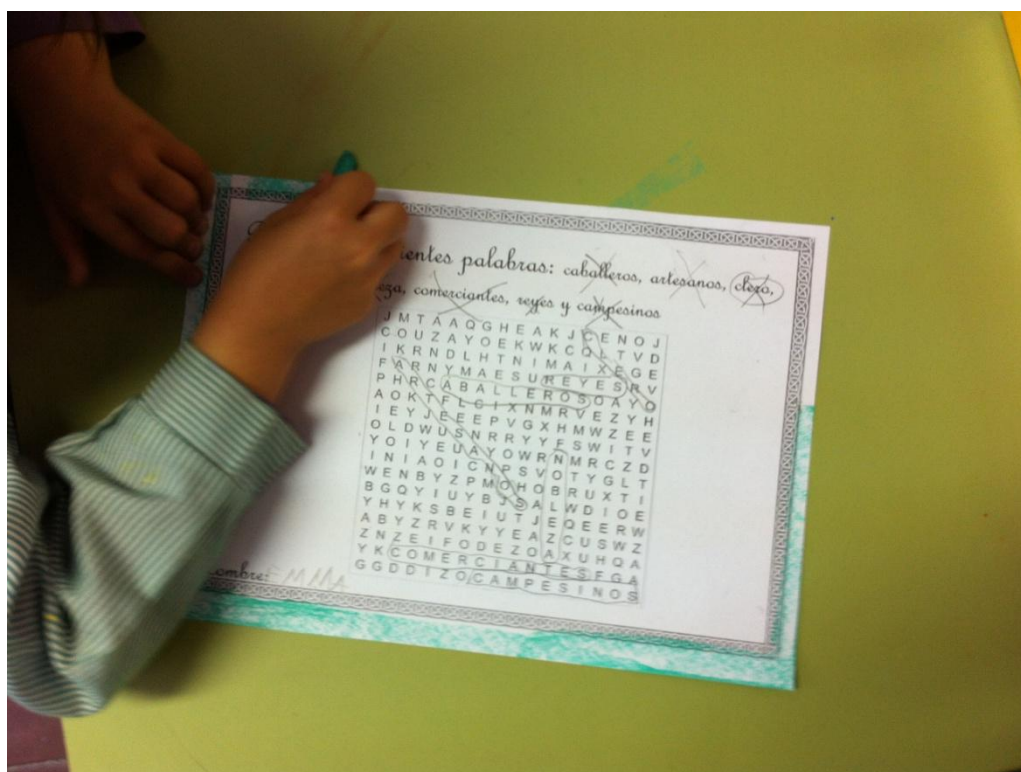 palabras: caballeros, artesanos, clero,
comerciantes, reyes y campesinos
J M T A A Q G H E A K J C E N O J
C O U Z A Y O E K W K C Q L T V D
I K R N D L H T N I M A I X E G E
F A R N Y M A E S U R E Y E S R V
P H R C A B A L L E R O S O A Y O
A O K T F L C I X N M R V E Z Y H
I E Y J E E E P V G X H M W Z E E
O L D W U S N R R Y Y F S W I T V
Y O I Y E U A Y O W R N M R C Z D
I N I A O I C N P S V O T Y G L T
W E N B Y Z P M O H O B R U X T I
B G Q Y I U Y B J S A L W D I O E
Y H Y K S B E I U T J E Q E E R W
A B Y Z R V K Y Y E A Z C U S W Z
Z N Z E I F O D E Z O A X U H Q A
Y K C O M E R C I A N T E S F G A
G G D D I Z O C A M P E S I N O S
EMMA